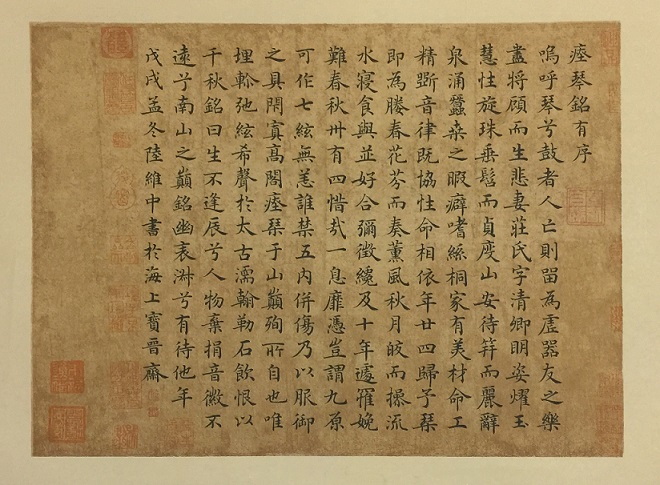 瘞琴銘有序
嗚呼琴兮鼓者人亡則留為虛器友之樂
盡將顧而生悲妻莊氏字清卿明姿燿玉
慧性旋珠垂髫而貞度山安待笄而麗辭
泉涌蠶桒之暇癖嗜絲桐家有美材命工
精斲音律既協性命相依年廿四歸予琹
即為媵春花芬而奏薰風秋月皎而操流
水寢食與並好合彌徵纔及十年遽罹娩
難春秋卅有四惜哉一息靡憑豈謂九原
可作七絃無恙誰禁五內併傷乃以服御
之具閇窴高閣瘞琹于山巔殉所自也唯
埋軫弛絃希聲於太古濡翰勒石飲恨以
千秋銘曰生不逢辰兮人物棄捐音徽不
遠兮南山之巔銘幽衷淋兮有待他年
戊戌孟冬陸維中書於海上寶晉齋